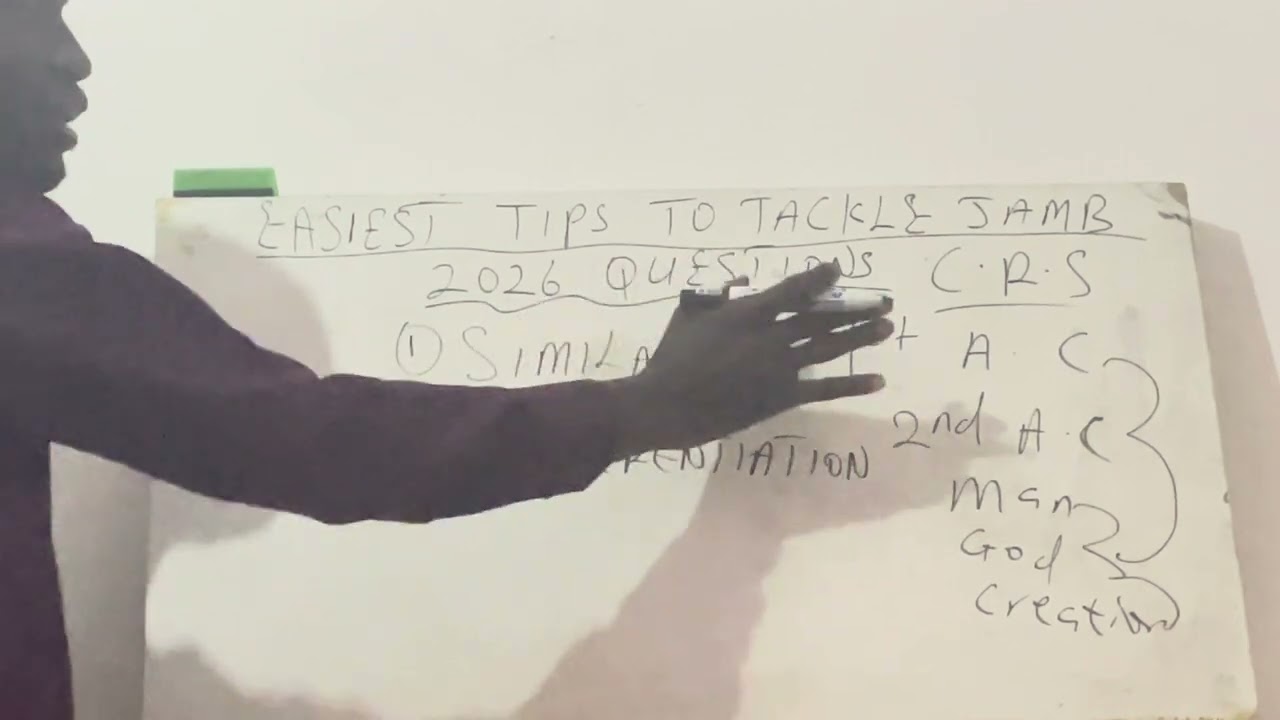 EASIEST TIPS TO TACKLE JAMB
2026 QUESTIONS C.R.S
① SIMILA
A. C
2nd A.C
RENTIATION
Man
God
Creation